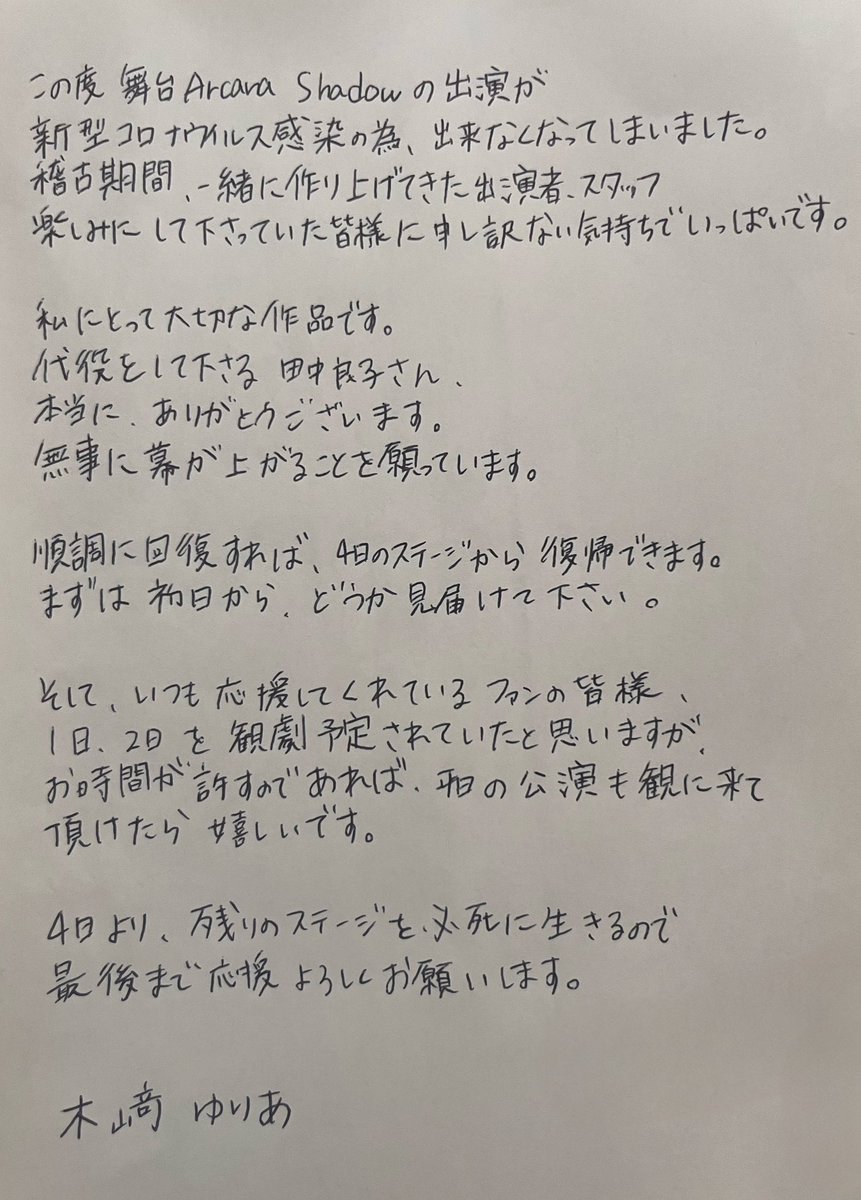 この度 舞台Arcana Shadowの出演が
新型コロナウイルス感染の為、出来なくなってしまいました。
稽古期間、一緒に作り上げてきた出演者、スタッフ
楽しみにして下さっていた皆様に申し訳ない気持ちでいっぱいです。
私にとって大切な作品です。
代役をして下さる 田中良子さん、
本当に、ありがとうございます。
無事に幕が上がることを願っています。
順調に回復すれば、4日のステージから 復帰できます。
まずは 初日から、どうか見届けて下さい。
そして、いつも応援してくれている ファンの皆様、
1日、2日を観劇予定されていたと思いますが、
お時間が許すのであれば、平日の公演も観に来て
頂けたら嬉しいです。
4日より、残りのステージを、必死に生きるので
最後まで応援よろしくお願いします。
木﨑 ゆりあ